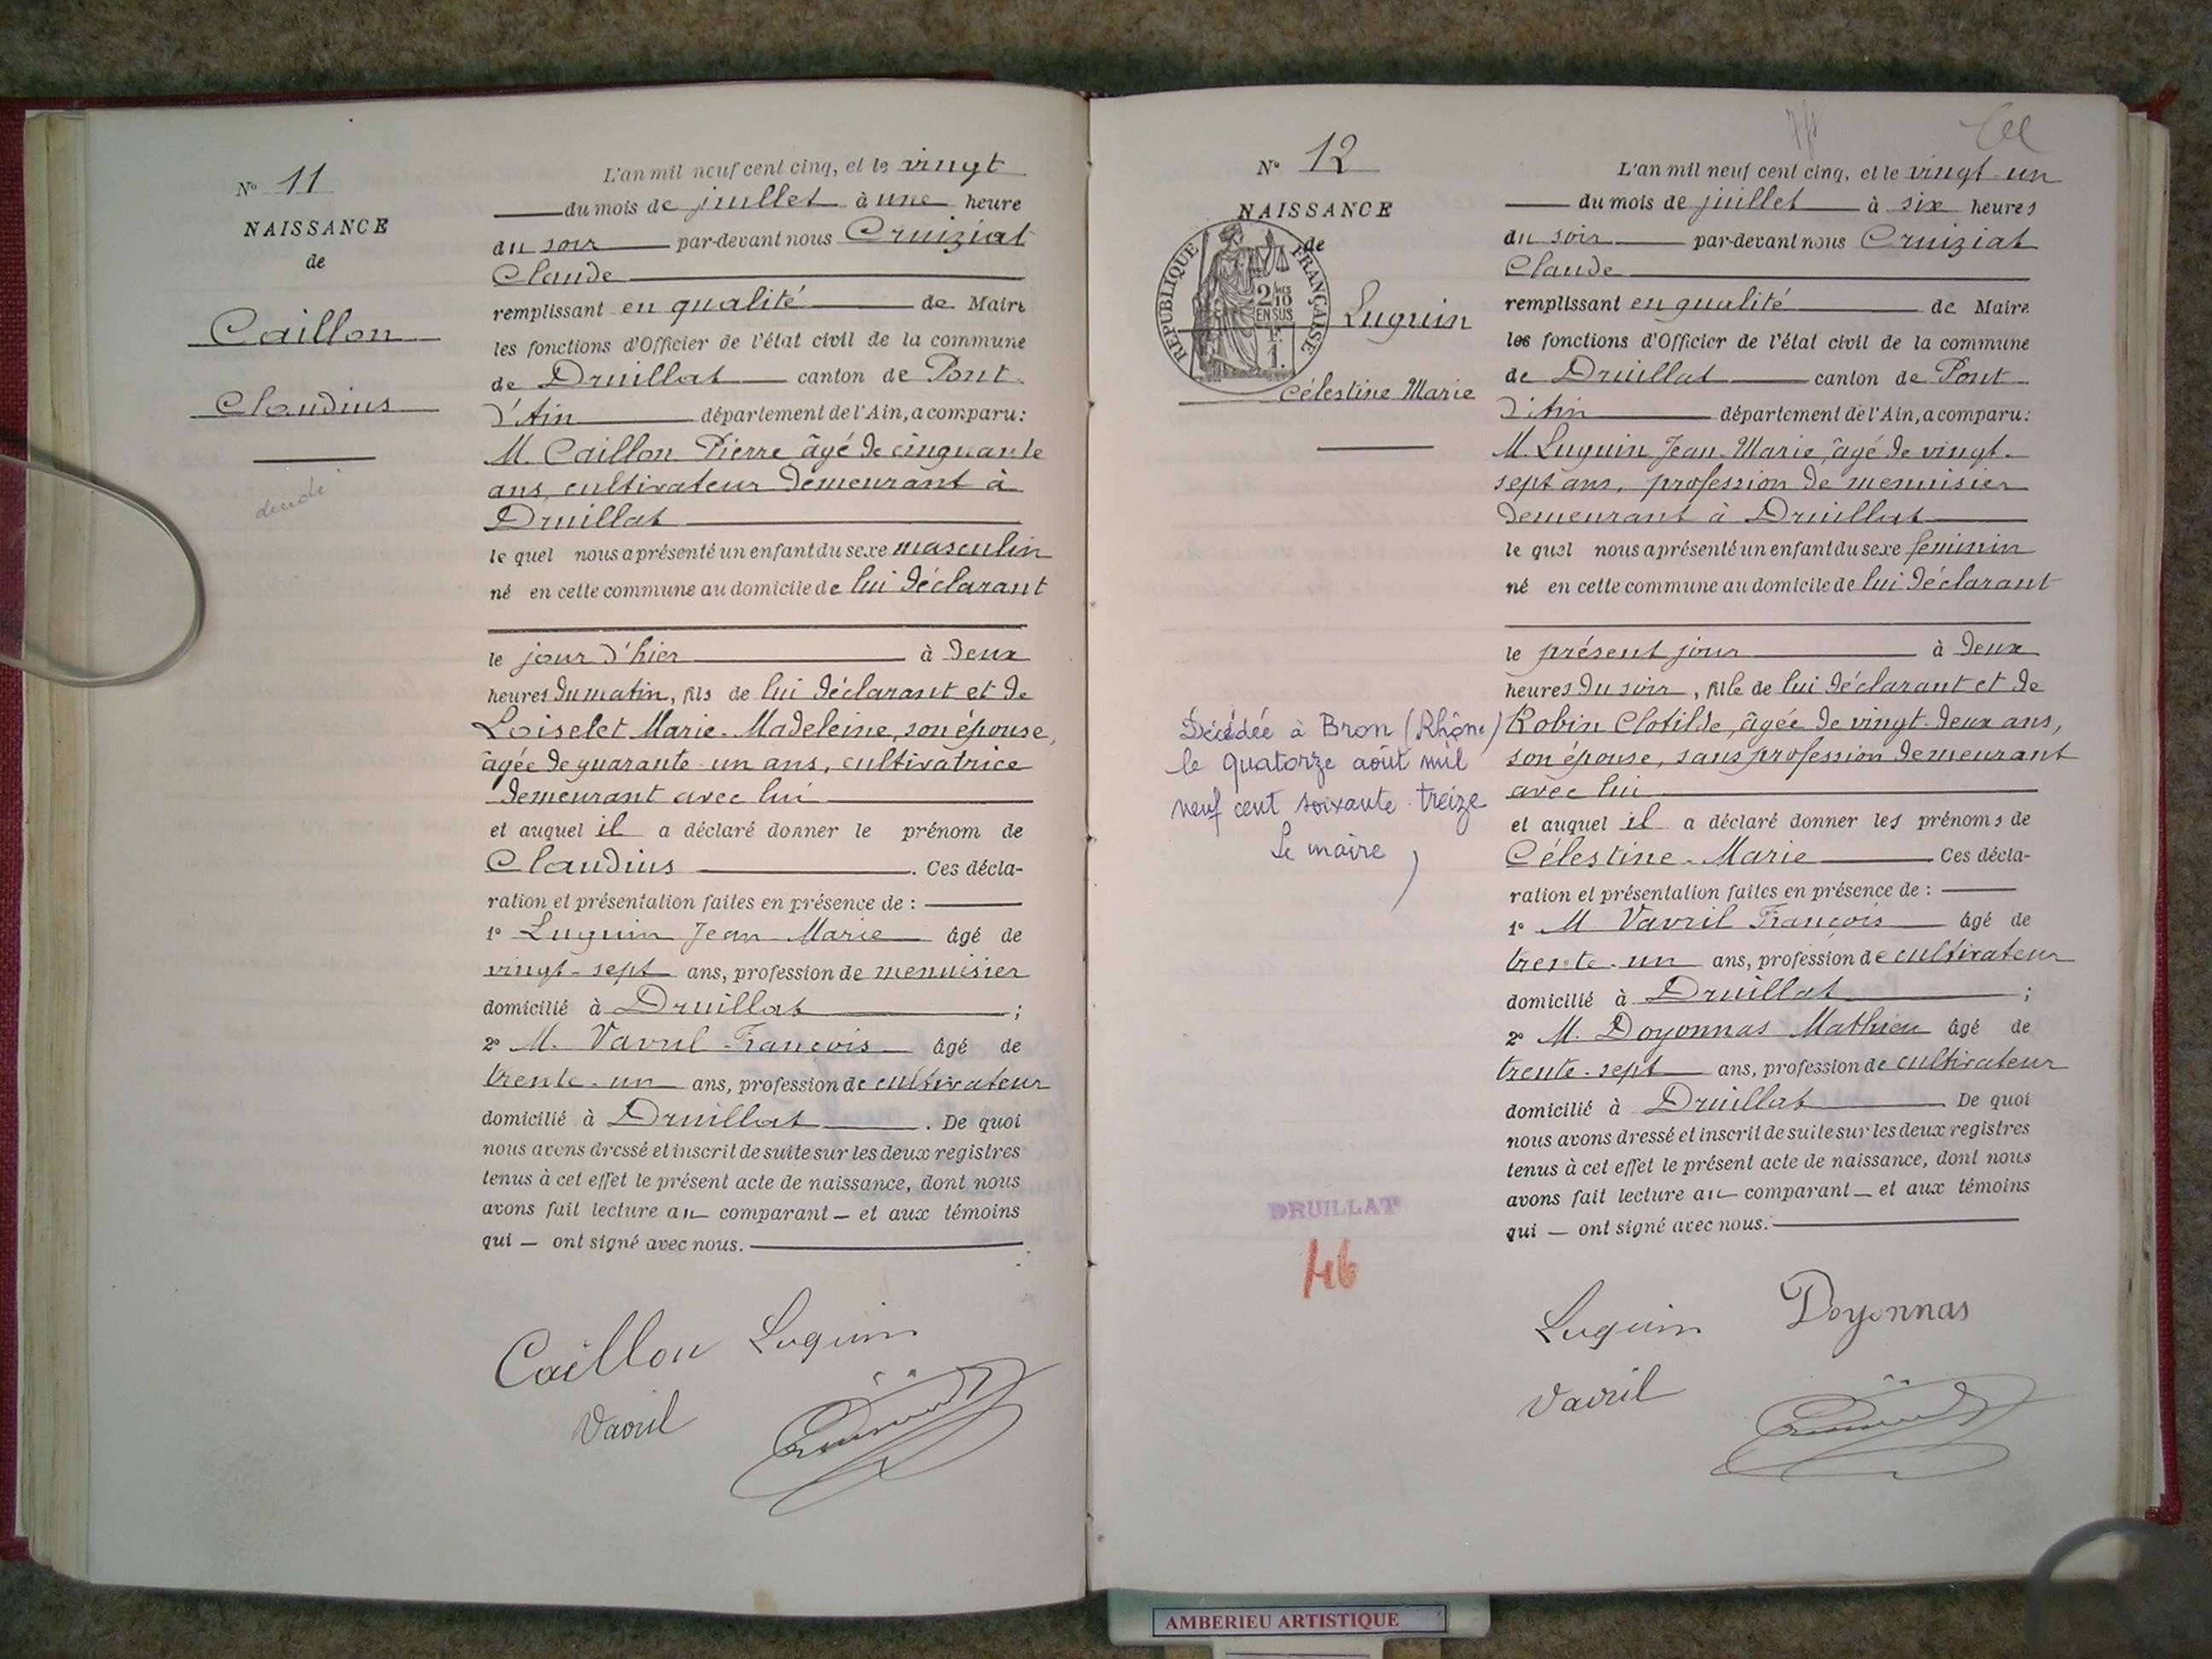 N° 11
NAISSANCE
de
Caillon
Claudius
L'an mil neuf cent cinq, et le vingt
du mois de juillet à une heure
du soir par-devant nous Cruiziat
Claude
remplissant en qualité de Maire
les fonctions d'Officier de l'état civil de la commune
de Druillat canton de Pont
d'Ain département de l'Ain, a comparu:
M. Caillon Pierre âgé de cinquante
ans, cultivateur demeurant à
Druillat
le quel nous a présenté un enfant du sexe masculin
né en cette commune au domicile de lui déclarant
le jour d'hier à deux
heures du matin, fils de lui déclarant et de
Loiselet Marie-Madeleine, son épouse,
âgée de quarante-un ans, cultivatrice
demeurant avec lui
et auquel il a déclaré donner le prénom de
Claudius. Ces décla-
ration et présentation faites en présence de :
1° Luguin Jean Marie âgé de
vingt-sept ans, profession de menuisier
domicilié à Druillat ;
2° M. Vavril François âgé de
trente-un ans, profession de cultivateur
domicilié à Druillat. De quoi
nous avons dressé et inscrit de suite sur les deux registres
tenus à cet effet le présent acte de naissance, dont nous
avons fait lecture au comparant et aux témoins
qui ont signé avec nous.
Caillon Luguin
Vavril
N° 12
NAISSANCE
de
RÉPUBLIQUE FRANÇAISE
2/10
EN SUS
1 F.
Luguin
Célestine Marie
Décédée à Bron (Rhône)
le quatorze août mil
neuf cent soixante-treize
Le maire
DRUILLAT
46
L'an mil neuf cent cinq, et le vingt-un
du mois de juillet à six heures
du soir par-devant nous Cruiziat
Claude
remplissant en qualité de Maire
les fonctions d'Officier de l'état civil de la commune
de Druillat canton de Pont
d'Ain département de l'Ain, a comparu:
M. Luguin Jean-Marie, âgé de vingt-
sept ans, profession de menuisier
demeurant à Druillat
le quel nous a présenté un enfant du sexe féminin
né en cette commune au domicile de lui déclarant
le présent jour à deux
heures du soir, fille de lui déclarant et de
Robin Clotilde, âgée de vingt-deux ans,
son épouse, sans profession demeurant
avec lui
et auquel il a déclaré donner les prénoms de
Célestine-Marie Ces décla-
ration et présentation faites en présence de :
1° M Vavril François âgé de
trente-un ans, profession de cultivateur
domicilié à Druillat ;
2° M. Doyonnas Mathieu âgé de
trente-sept ans, profession de cultivateur
domicilié à Druillat De quoi
nous avons dressé et inscrit de suite sur les deux registres
tenus à cet effet le présent acte de naissance, dont nous
avons fait lecture au comparant et aux témoins
qui ont signé avec nous.
Luguin Doyonnas
Vavril
AMBERIEU ARTISTIQUE